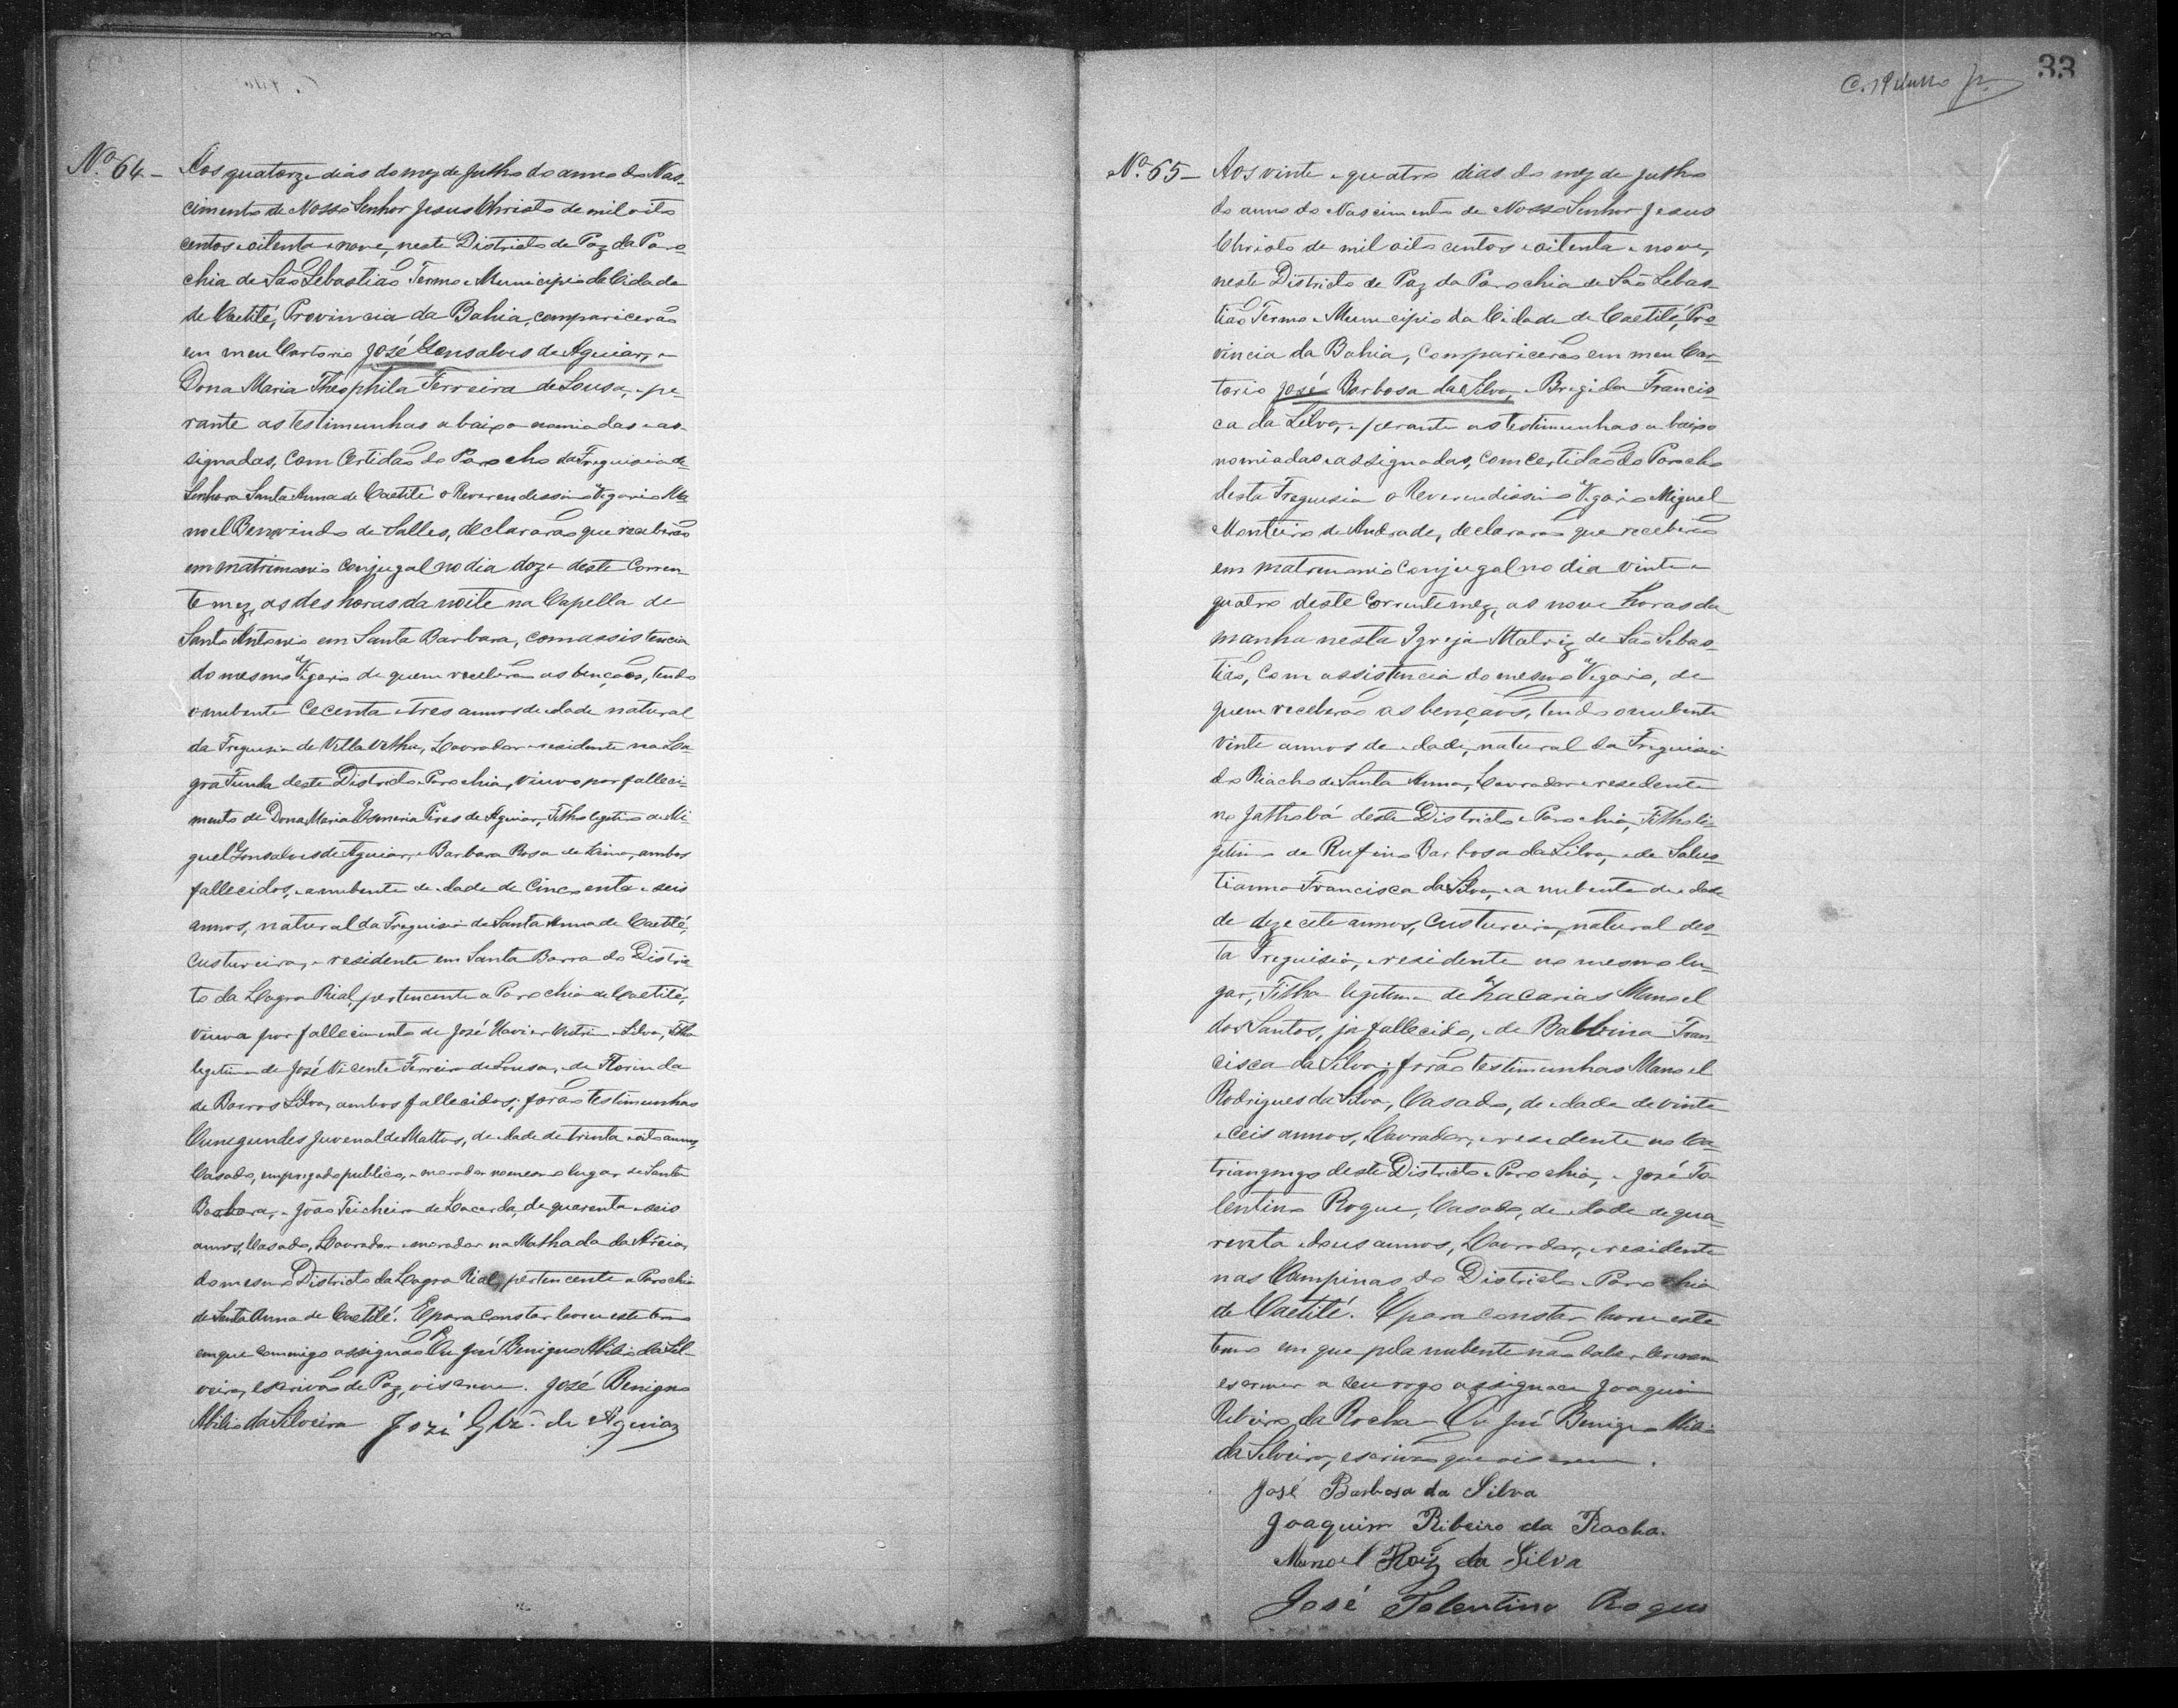 Nº 64 — Aos quatorze dias do mez de Julho do anno do Nas-
cimento de Nosso Senhor Jesus Christo de mil oito
centos e oitenta e nove, neste Districto de Paz da Paro-
chia de São Sebastião Termo e Municipio da Cidade
de Caetité, Provincia da Bahia, comparicerão
em meu Cartorio José Gonsalves de Aguiar, e
Dona Maria Theophila Ferreira de Sousa, e pe-
rante as testimunhas abaixo nomiadas e as-
signadas, com Certidão do Parocho da Freguisia de
Senhora Santa Anna de Caetité o Reverendessimo Vigario Ma-
noel Benvindo de Salles, declararão que receberão
em matrimonio conjugal no dia doze deste Corren-
te mez, as des horas da noite na Capella de
Santo Antonio em Santa Barbara, com assistencia
do mesmo Vigario de quem receberão as bençãos, tendo
o nubente Cecenta e tres annos de edade natural
da Freguisia de Villa Velha, Lavrador e residente na La-
gôa Funda deste Districto e Parochia, viuvo por falleci-
mento de Dona Maria Esmeria Pires de Aguiar, Filho legitimo de Mi-
guel Gonsalves de Aguiar, e Barbara Rosa de Lima, ambos
fallecidos, e a nubente de edade de Cincoenta e seis
annos, natural da Freguisia de Santa Anna de Caetité,
Custureira, e residente em Santa Barra do Distric-
to da Lagoa Rial, pertencente a Parochia de Caetité,
viuva por fallecimento de José Xavier e Silva, Filha
legitima de José Vicente Ferreira de Sousa, e de Florinda
de Barros Silva, ambos fallecidos; forão testimunhas
Cunegundes Juvenal de Mattos, de edade de trinta e oito annos,
Casado, empregado publico, e morador no mesmo lugar de Santa
Barbara, e João Teicheira de Lacerda, de quarenta e seis
annos, Casado, Lavrador e morador na Malhada da Areia,
do mesmo Districto da Lagoa Rial, pertencente a Parochia
de Santa Anna de Caetité. E para constar lavrei este termo
em que commigo assignão Eu José Benigno Abilio da Sil-
veira, escrivão de Paz, o iscrevi. José Benigno
Abilio da Silveira José Glz. de Aguiar
33
Nº 65 — Aos vinte e quatro dias do mez de Julho
do anno do Nascimento de Nosso Senhor Jesus
Christo de mil oito centos e oitenta e nove,
neste Districto de Paz da Parochia de São Sebas-
tião Termo e Municipio da Cidade de Caetité, Pro-
vincia da Bahia, comparicerão em meu Car-
torio José Barbosa da Silva, e Brigida Francis-
ca da Silva, e perante as testimunhas abaixo
nomiadas e assignadas, com certidão do Parocho
desta Freguisia o Reverendissimo Vigario Miguel
Monteiro de Andrade, declararão que receberão
em matrimonio conjugal no dia vinte e
quatro deste corrente mez, as nove horas da
manha nesta Igreja Matriz de São Sebas-
tião, com assistencia do mesmo Vigario, de
quem receberão as bençãos, tendo o nubente
vinte annos de edade, natural da Freguisia
do Riacho de Santa Anna, Lavrador e resedente
no Jathobá deste Districto e Parochia, Filho le-
gitimo de Rufino Barbosa da Silva, e de Salus-
tianna Francisca da Silva, e a nubente de edade
de dezecete annos, Custureira, natural des-
ta Freguisia, e residente no mesmo lu-
gar, Filha legitima de Zacarias Manoel
dos Santos, já fallecido, e de Balbina Fran-
cisca da Silva; forão testimunhas Manoel
Rodrigues da Silva, Casado, de edade de vinte
e ceis annos, Lavrador, e resedente no
deste Districto e Parochia, e José To-
lentino Roque, Casado, de edade de qua-
renta e dous annos, Lavrador, e residente
nas Campinas do Districto e Parochia
de Caetité. E para constar lavrei este
termo em que pela nubente não saber ler nem
escrever a seu rogo assignou Joaquim
Ribeiro da Rocha. Eu José Benigno Abilio
da Silveira, escrivão que o iscrevi.
José Barbosa da Silva
Joaquim Ribeiro da Rocha.
Manoel Roiz da Silva
José Tolentino Roque